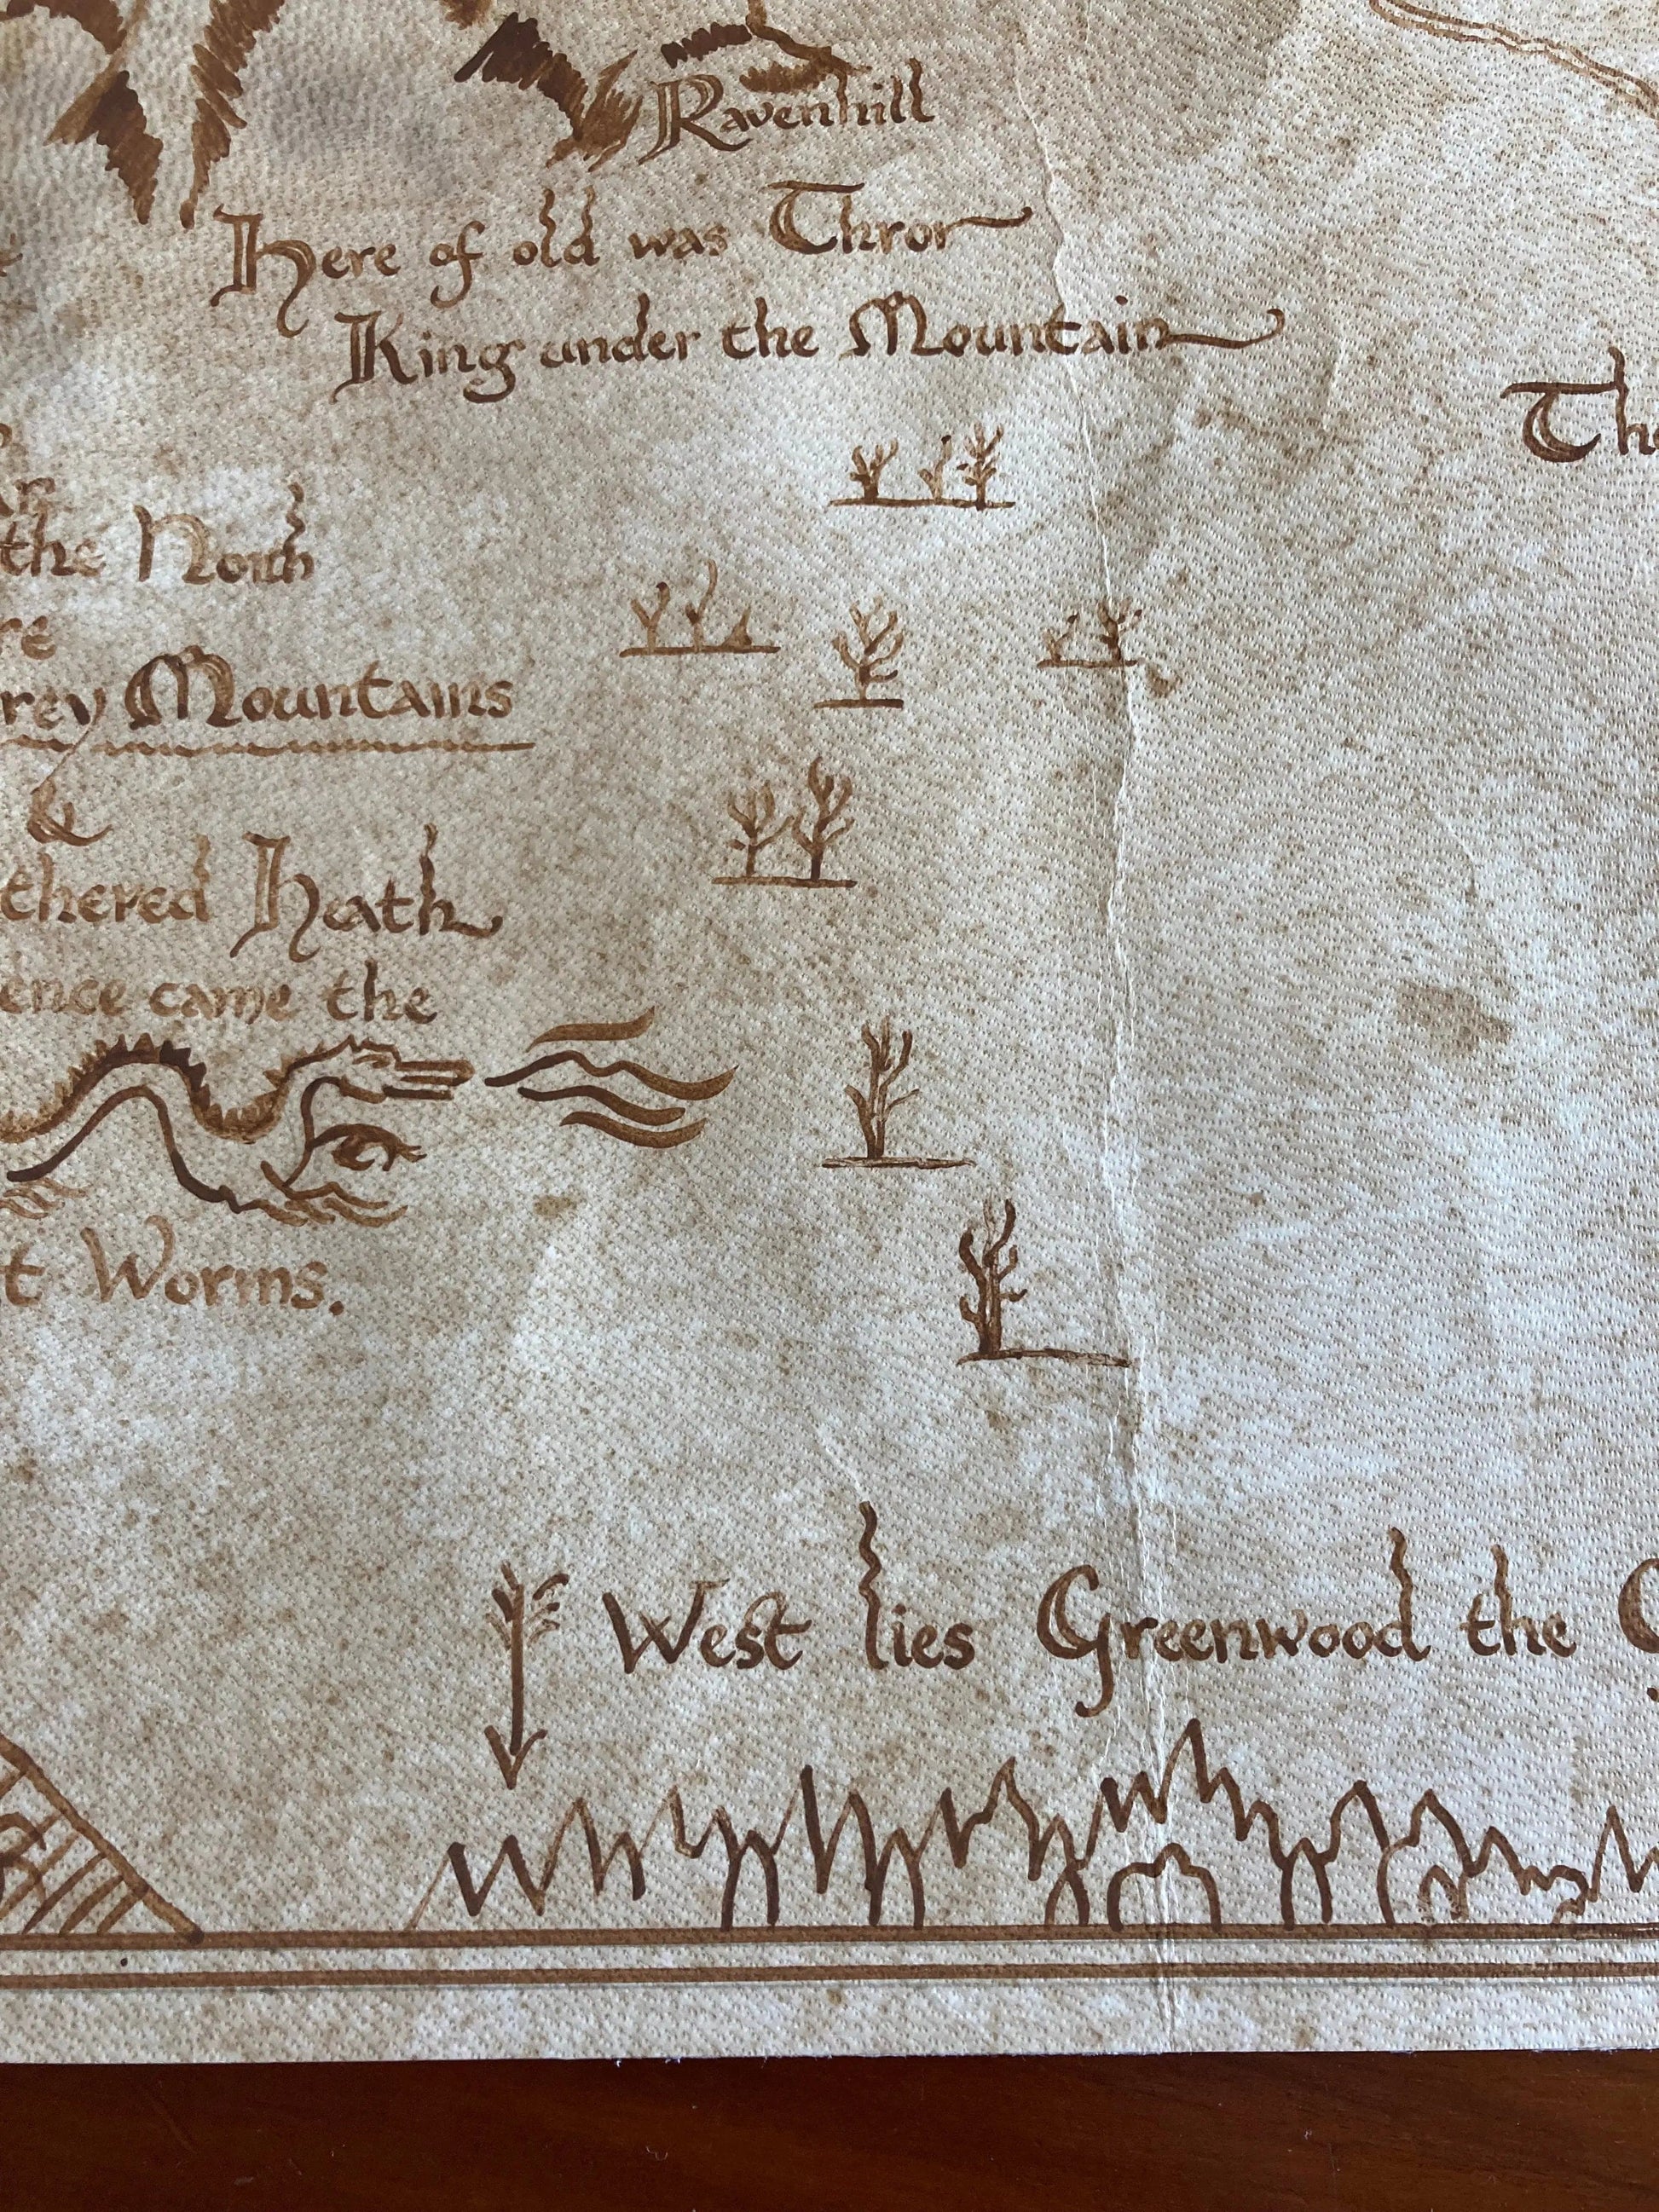 Ravenhill
Here of old was Thror
King under the Mountain
The
the North
re
rey Mountains
&
thered Heath
ence came the
t Worms.
West lies Greenwood the G